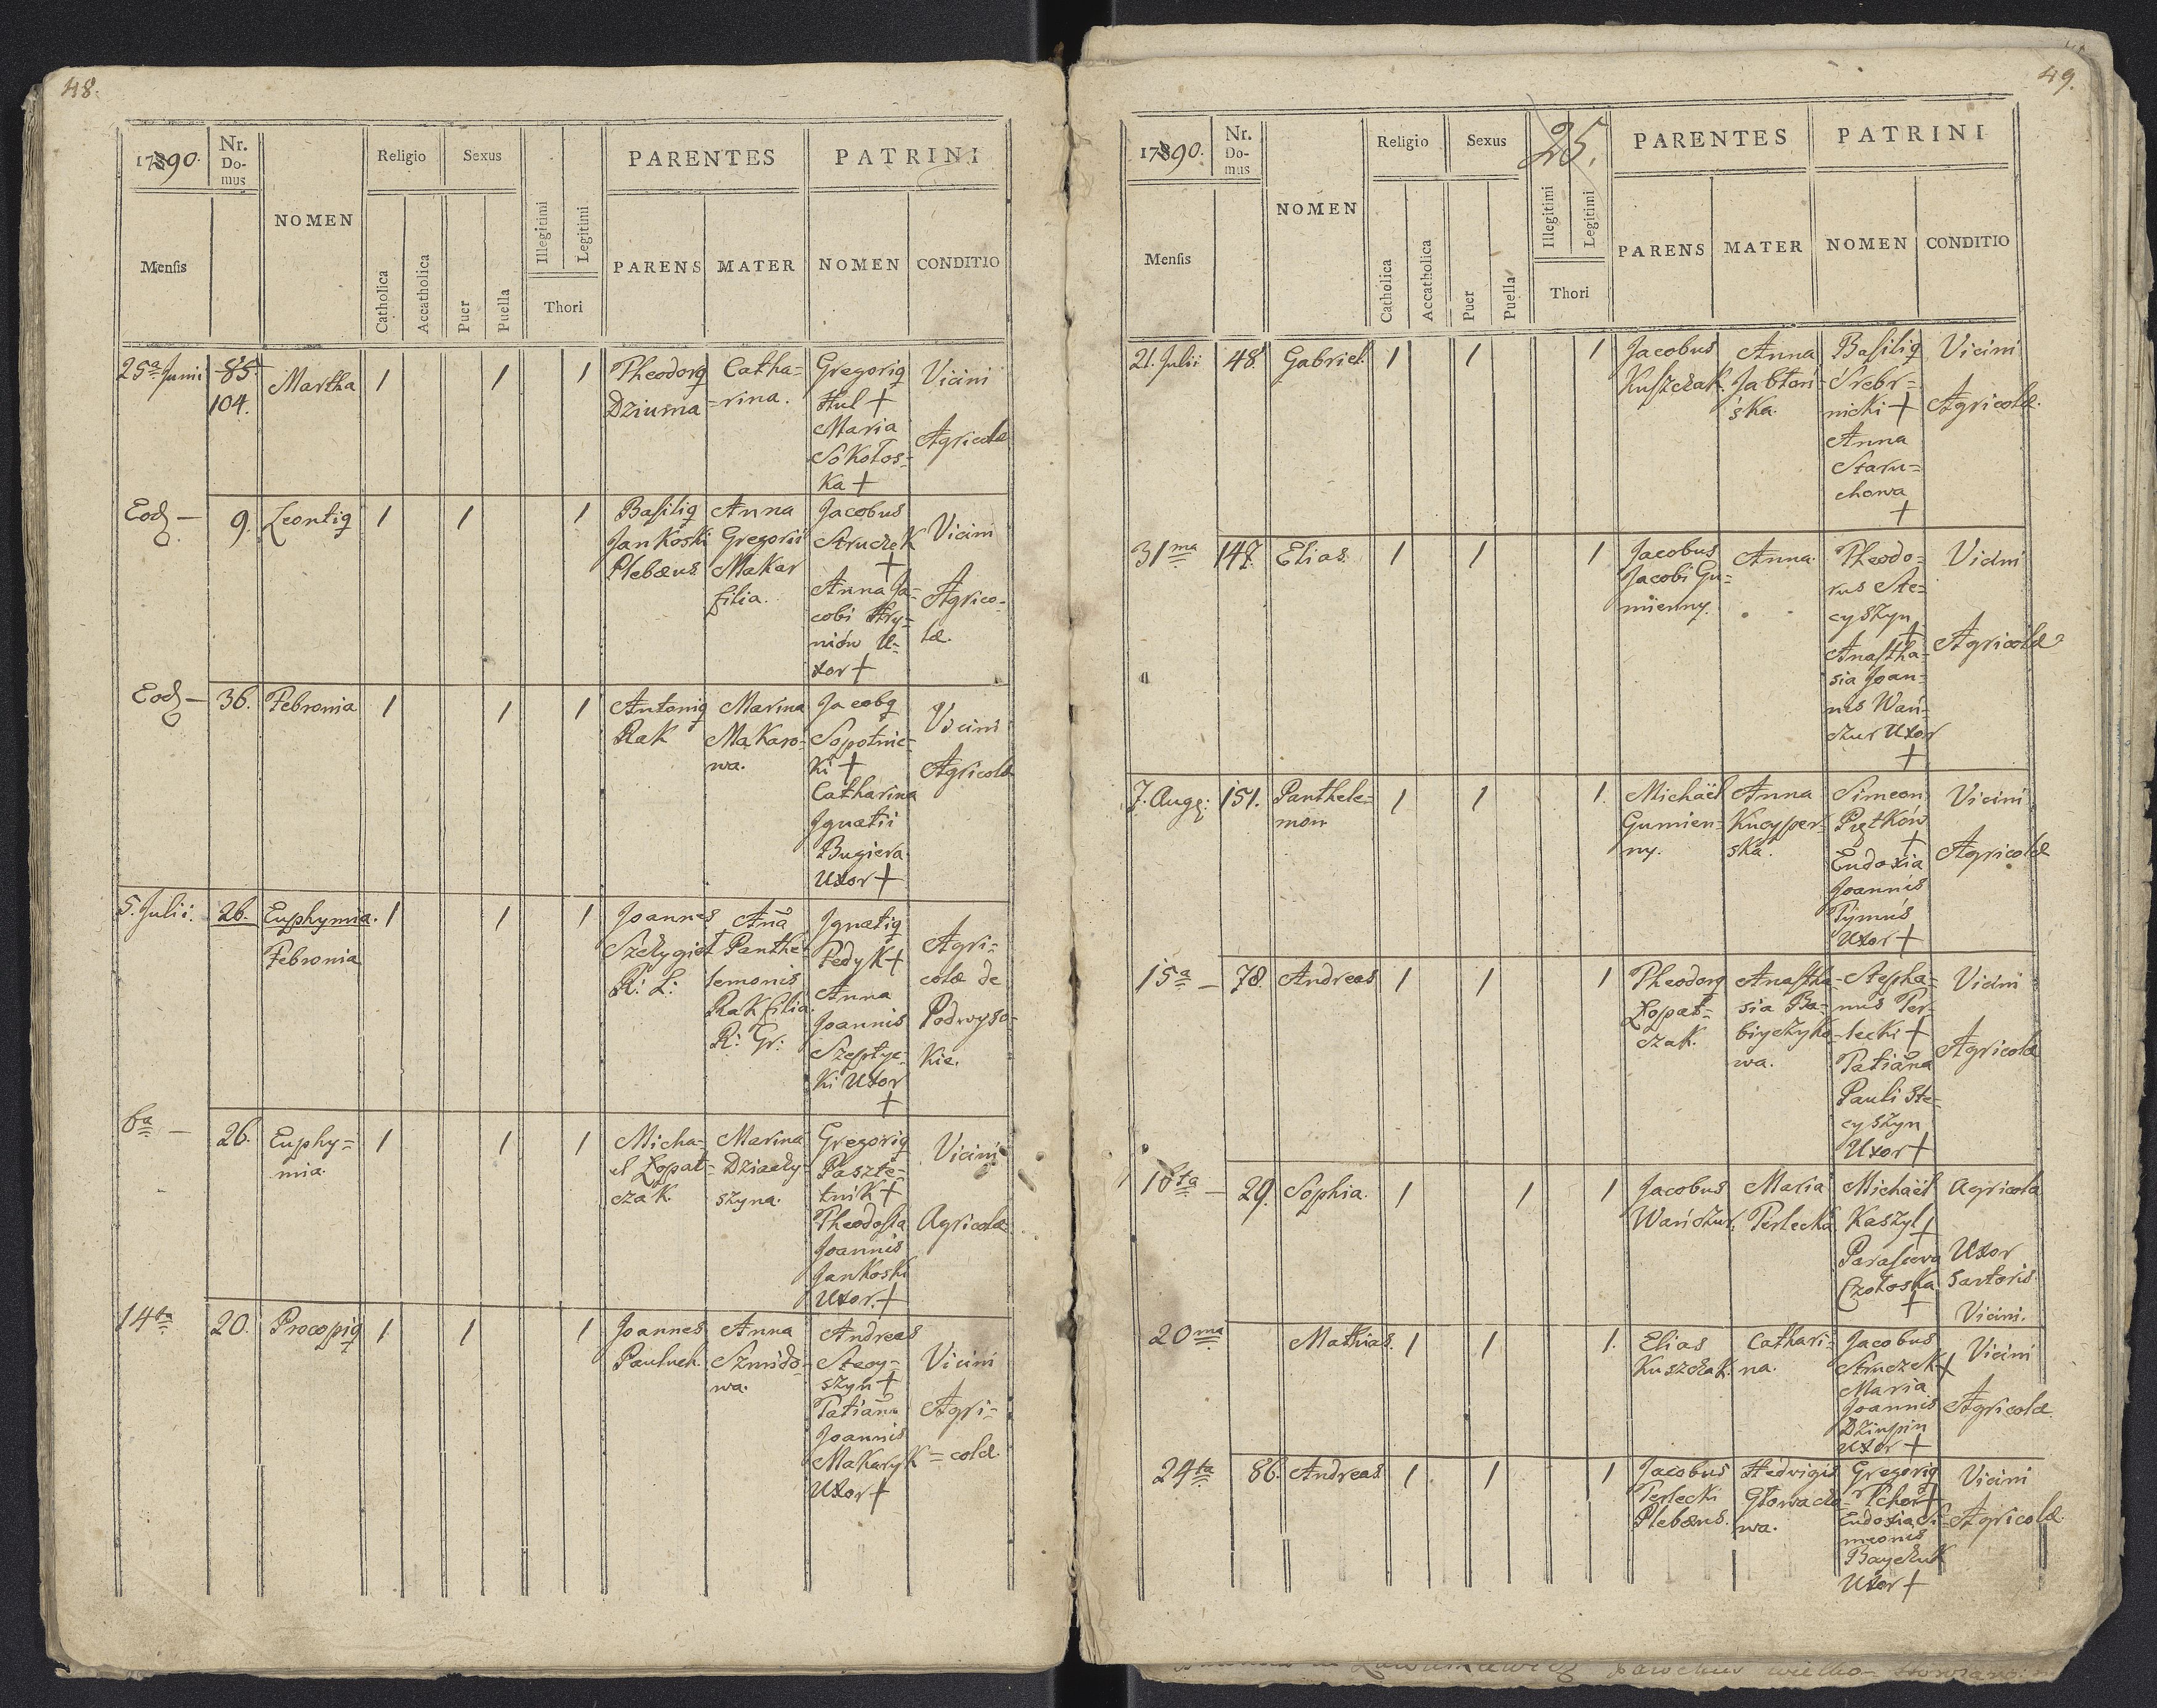 48.
1790.
Nr.
Do-
mus
Mensis
NOMEN
Religio
Catholica
Accatholica
Sexus
Puer
Puella
Illegitimi
Legitimi
Thori
PARENTES
PARENS
MATER
PATRINI
NOMEN
CONDITIO
25a Junii
85.
104.
Martha
1
1
1
Theodorq
Dziuma
Catha=
=rina.
Gregoriq
Hul +
Maria
Sokołos=
ka +
Vicini
Agricolæ
Eod —
9.
Leontiq
1
1
1
Basiliq
Jankoski
Plebæus
Anna
Gregorii
Makar
filia.
Jacobus
Struczek
+
Anna Ja=
cobi Hry=
niów U=
xor +
Vicini
Agrico=
læ.
Eod —
36.
Febronia
1
1
1
Antoniq
Rak
Marina
Makaro=
wa.
Jacobq
Sopotnic=
ki +
Catharina
Ignatii
Bugiera
Uxor +
Vicini
Agricolæ
5. Julii.
26.
Euphymia.
Febronia
1
1
1
Joannes
R: L:
Aña
Panthe=
lemonis
Rak filia
R: Gr:
Ignatiq
Fedyk +
Anna
Joannis
Szeptyc=
ki Uxor
+
Agri=
colæ de
Podwyso=
kie.
6a —
26.
Euphy=
mia.
1
1
1
Micha=
el Łopat=
czak.
Marina
szyna.
Gregoriq
Paszte=
tnik +
Theodosia
Joannis
Jankoski
Uxor. +
Vicini
Agricolæ
14ta
20.
Procopiq
1
1
1
Joannes
Pauluch.
Anna
Szmido=
wa.
Andreas
Stecy=
szyn +
Tatiana
Joannis
Makaryk
Uxor +
Vicini
Agri=
=colæ
49.
1790.
Nr.
Do-
mus
Mensis
NOMEN
Religio
Catholica
Accatholica
Sexus
Puer
Puella
25.
Illegitimi
Legitimi
Thori
PARENTES
PARENS
MATER
PATRINI
NOMEN
CONDITIO
21. Julii
48.
Gabriel.
1
1
1
Jacobus
Kuszczak.
Anna
Jabłoń=
ska.
Basiliq
Srebr=
nicki +
Anna
Staru=
chowa
+
Vicini
Agricolæ.
31ma
147.
Elias.
1
1
1
Jacobus
Jacobi Gu=
mienny.
Anna.
Theodo=
rus Ste=
cyszyn
+
Anastha=
sia Joan=
nis Wań=
czur Uxor
+
Vicini
Agricolæ
7. Augq:
151.
Panthele=
mon
1
1
1.
Michaël
Gumien=
ny.
Anna
Kucyper=
ska.
Simeon
Piętków
+
Eudoxia
Joannis
Tymus
Uxor +
Vicini
Agricolæ
15a —
78.
Andreas
1
1
1
Theodorq
Łopat=
czak.
Anastha=
sia Ba=
biyczyko=
wa.
Stepha=
nus Ter=
lecki +
Tatiana
Pauli Ste=
cyszyn
Uxor +
Vicini
Agricolæ
16ta —
29.
Sophia.
1
1
1
Jacobus
Wańczur.
Maria
Terlecka
Michaël
Kaszyl +
Parasceva
Czołoska
+
Agricola
Uxor
Sartoris.
Vicini.
20ma
Mathias.
1
1
1.
Elias
Kuszczak.
Cathari=
na.
Jacobus
Struczek +
Maria
Joannis
Uxor +
Vicini
Agricolæ.
24ta
86.
Andreas
1
1
1
Jacobus
Terlecki
Plebæus.
Hedvigis
Głowacko=
wa.
Gregoriq
Tchor +
Eudoxia Si=
meonis
Bayczuk
Uxor +
Vicini
Agricolæ